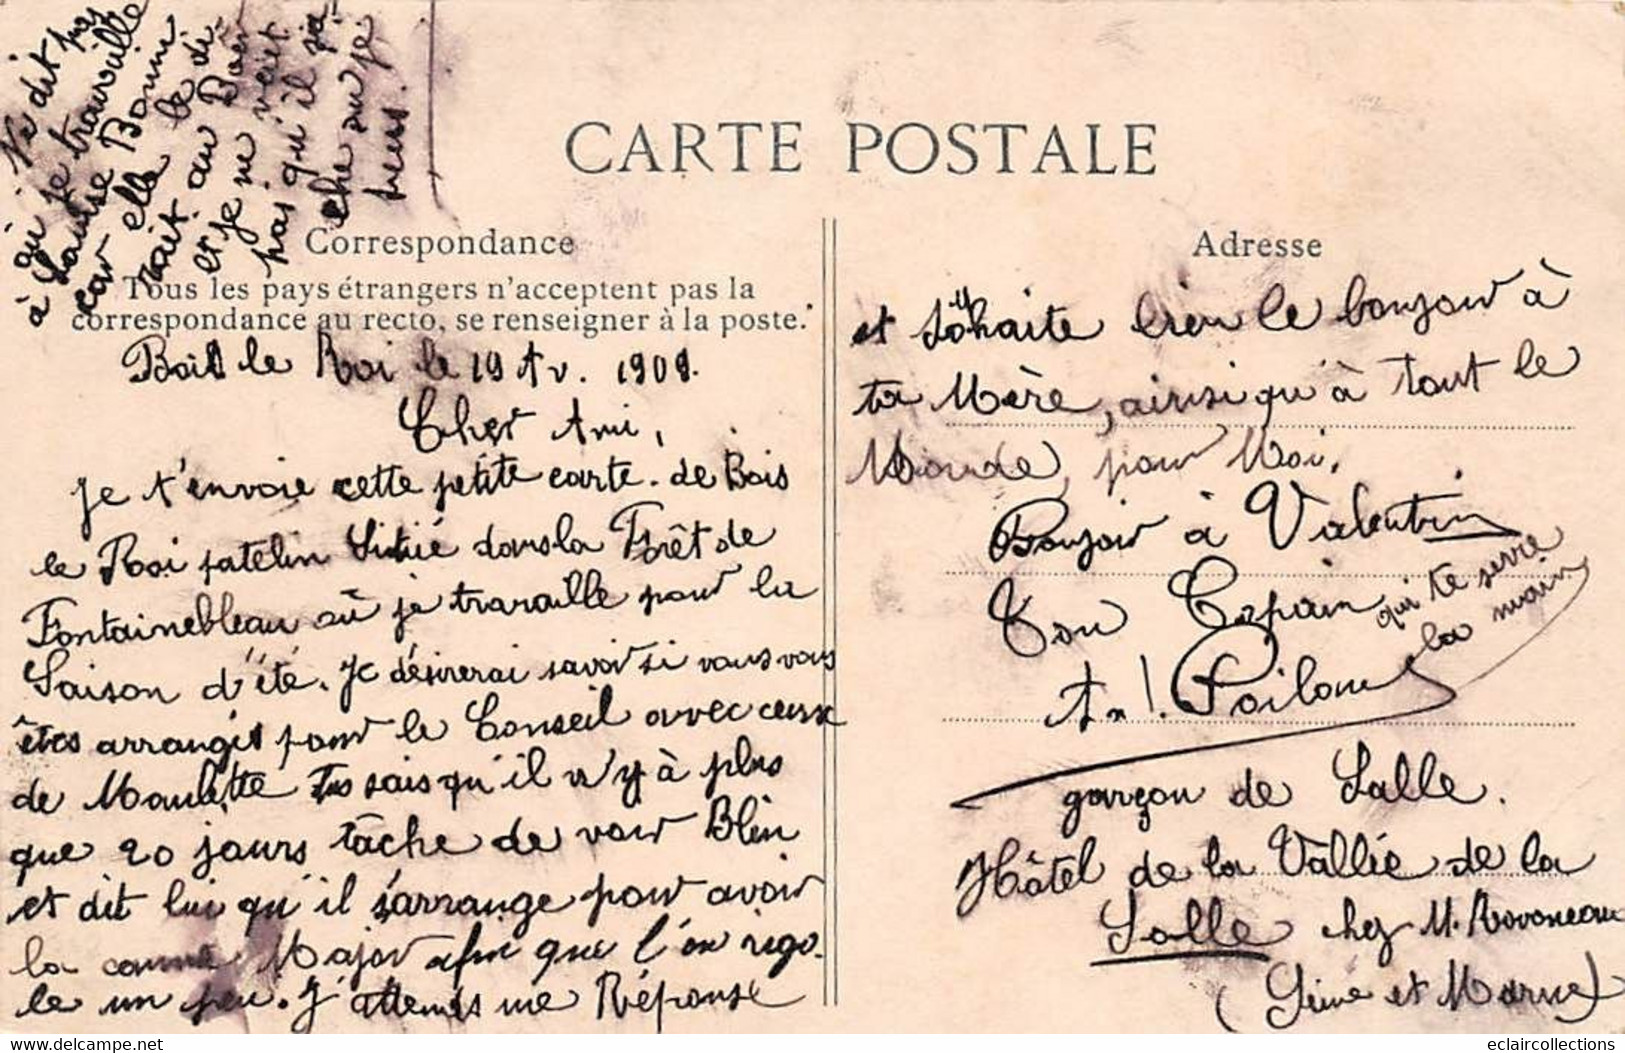 Ne dit pas
qui je travaille
à Louise Bonni
car elle le di-
rait au Boër
et je ne vait
pas qu'il sa-
che ou je
suis.
CARTE POSTALE
Correspondance
Tous les pays étrangers n'acceptent pas la
correspondance au recto, se renseigner à la poste.
Bois le Roi le 19 Av. 1908.
Cher Ami,
Je t'envoie cette petite carte. de Bois
le Roi patelin Situé dans la Forêt de
Fontainebleau où je travaille pour la
Saison d'été. Je désirerai savoir si vous vous
êtes arrangés pour le Conseil avec ceux
de Maulette Tu sais qu'il n'y à plus
que 20 jours tâche de voir Blin
et dit lui qu'il s'arrange pour avoir
la canne Major afin que l'on rigo-
le un peu. J'attends une Réponse
Adresse
et souhaite bien le bonjour à
ta Mère, ainsi qu'à tout le
Monde, pour Moi.
Bonjour à Valentin
Ton Copain qui te serre
la main
Poilou
garçon de Salle.
Hôtel de la Vallée de la
Salle chez M.
(Seine et Marne)
eclaircollections